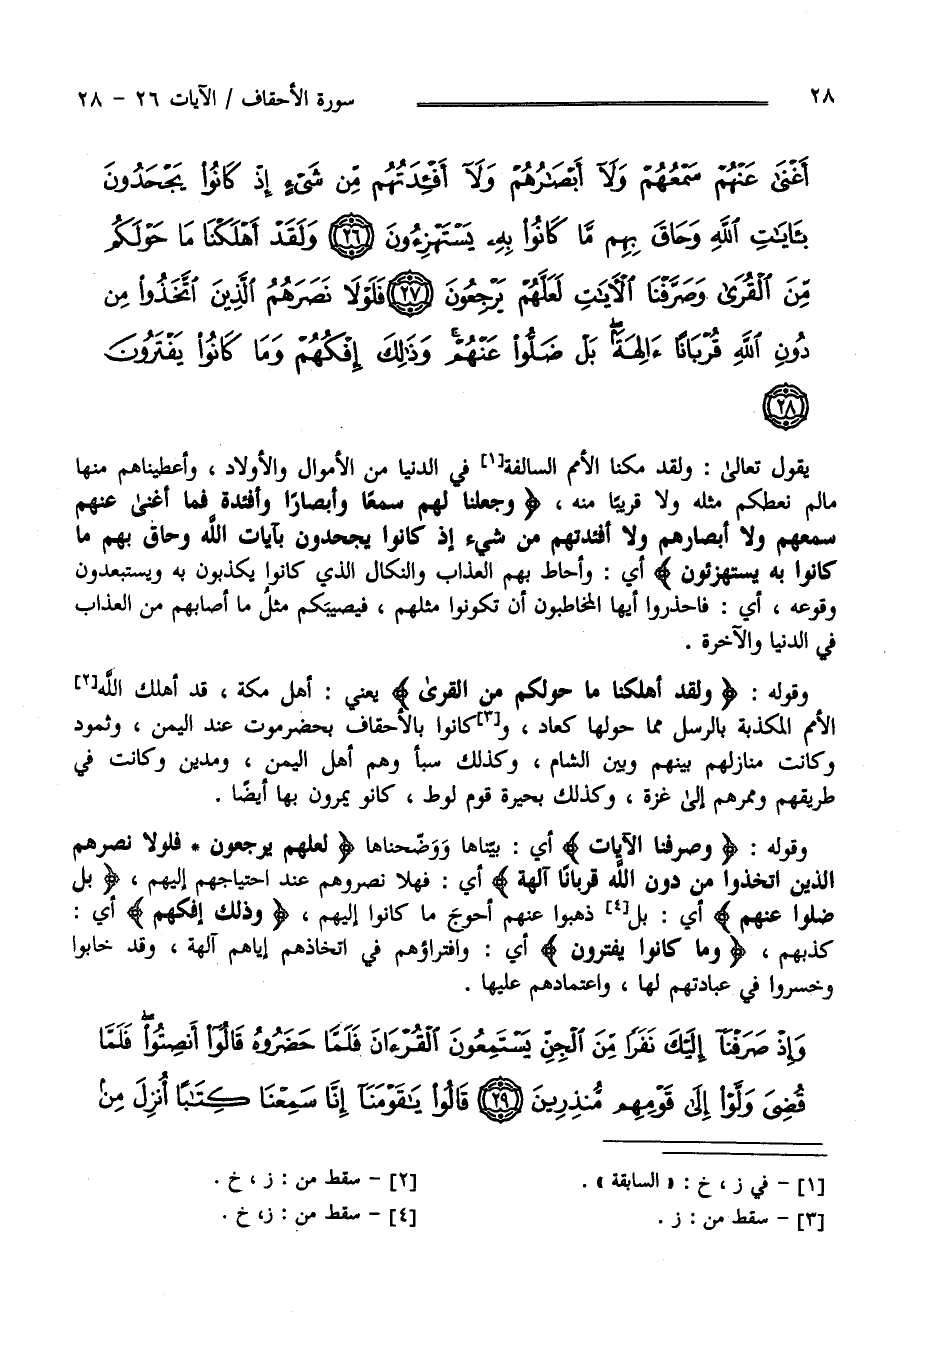 ٢٨ سورة الأحقاف / الآيات ٢٦ - ٢٨
أَغْنَىٰ عَنْهُمْ سَمْعُهُمْ وَلَآ أَبْصَٰرُهُمْ وَلَآ أَفْـِٔدَتُهُم مِّن شَىْءٍ إِذْ كَانُوا۟ يَجْحَدُونَ
بِـَٔايَٰتِ ٱللَّهِ وَحَاقَ بِهِم مَّا كَانُوا۟ بِهِۦ يَسْتَهْزِءُونَ ٢٦ وَلَقَدْ أَهْلَكْنَا مَا حَوْلَكُم
مِّنَ ٱلْقُرَىٰ وَصَرَّفْنَا ٱلْآيَٰتِ لَعَلَّهُمْ يَرْجِعُونَ ٢٧ فَلَوْلَا نَصَرَهُمُ ٱلَّذِينَ ٱتَّخَذُوا۟ مِن
دُونِ ٱللَّهِ قُرْبَانًا ءَالِهَةًۢ ۖ بَلْ ضَلُّوا۟ عَنْهُمْ ۚ وَذَٰلِكَ إِفْكُهُمْ وَمَا كَانُوا۟ يَفْتَرُونَ
٢٨
يقول تعالىٰ : ولقد مكنا الأمم السالفة[١] في الدنيا من الأموال والأولاد ، وأعطيناهم منها
مالم نعطكم مثله ولا قريبًا منه ، ﴿ وجعلنا لهم سمعًا وأبصارًا وأفئدة فما أغنىٰ عنهم
سمعهم ولا أبصارهم ولا أفئدتهم من شيء إذ كانوا يجحدون بآيات اللَّه وحاق بهم ما
كانوا به يستهزئون ﴾ أي : وأحاط بهم العذاب والنكال الذي كانوا يكذبون به ويستبعدون
وقوعه ، أي : فاحذروا أيها المخاطبون أن تكونوا مثلهم ، فيصيبَكم مثلُ ما أصابهم من العذاب
في الدنيا والآخرة .
وقوله : ﴿ ولقد أهلكنا ما حولكم من القرىٰ ﴾ يعني : أهل مكة ، قد أهلك اللَّه[٢]
الأمم المكذبة بالرسل مما حولها كعاد ، و[٣]كانوا بالأحقاف بحضرموت عند اليمن ، وثمود
وكانت منازلهم بينهم وبين الشام ، وكذلك سبأ وهم أهل اليمن ، ومدين وكانت في
طريقهم وممرهم إلىٰ غزة ، وكذلك بحيرة قوم لوط ، كانو يمرون بها أيضًا .
وقوله : ﴿ وصرفنا الآيات ﴾ أي : بيّناها وَوَضّحناها ﴿ لعلهم يرجعون * فلولا نصرهم
الذين اتخذوا من دون اللَّه قربانًا آلهة ﴾ أي : فهلا نصروهم عند احتياجهم إليهم ، ﴿ بل
ضلوا عنهم ﴾ أي : بل[٤] ذهبوا عنهم أحوجَ ما كانوا إليهم ، ﴿ وذلك إفكهم ﴾ أي :
كذبهم ، ﴿ وما كانوا يفترون ﴾ أي : وافتراؤهم في اتخاذهم إياهم آلهة ، وقد خابوا
وخسروا في عبادتهم لها ، واعتمادهم عليها .
وَإِذْ صَرَفْنَآ إِلَيْكَ نَفَرًا مِّنَ ٱلْجِنِّ يَسْتَمِعُونَ ٱلْقُرْءَانَ فَلَمَّا حَضَرُوهُ قَالُوٓا۟ أَنصِتُوا۟ ۖ فَلَمَّا
قُضِىَ وَلَّوْا۟ إِلَىٰ قَوْمِهِم مُّنذِرِينَ ٢٩ قَالُوا۟ يَٰقَوْمَنَآ إِنَّا سَمِعْنَا كِتَٰبًا أُنزِلَ مِنۢ
[١] - في ز ، خ : « السابقة » . [٢] - سقط من : ز ، خ .
[٣] - سقط من : ز . [٤] - سقط من : ز، خ .